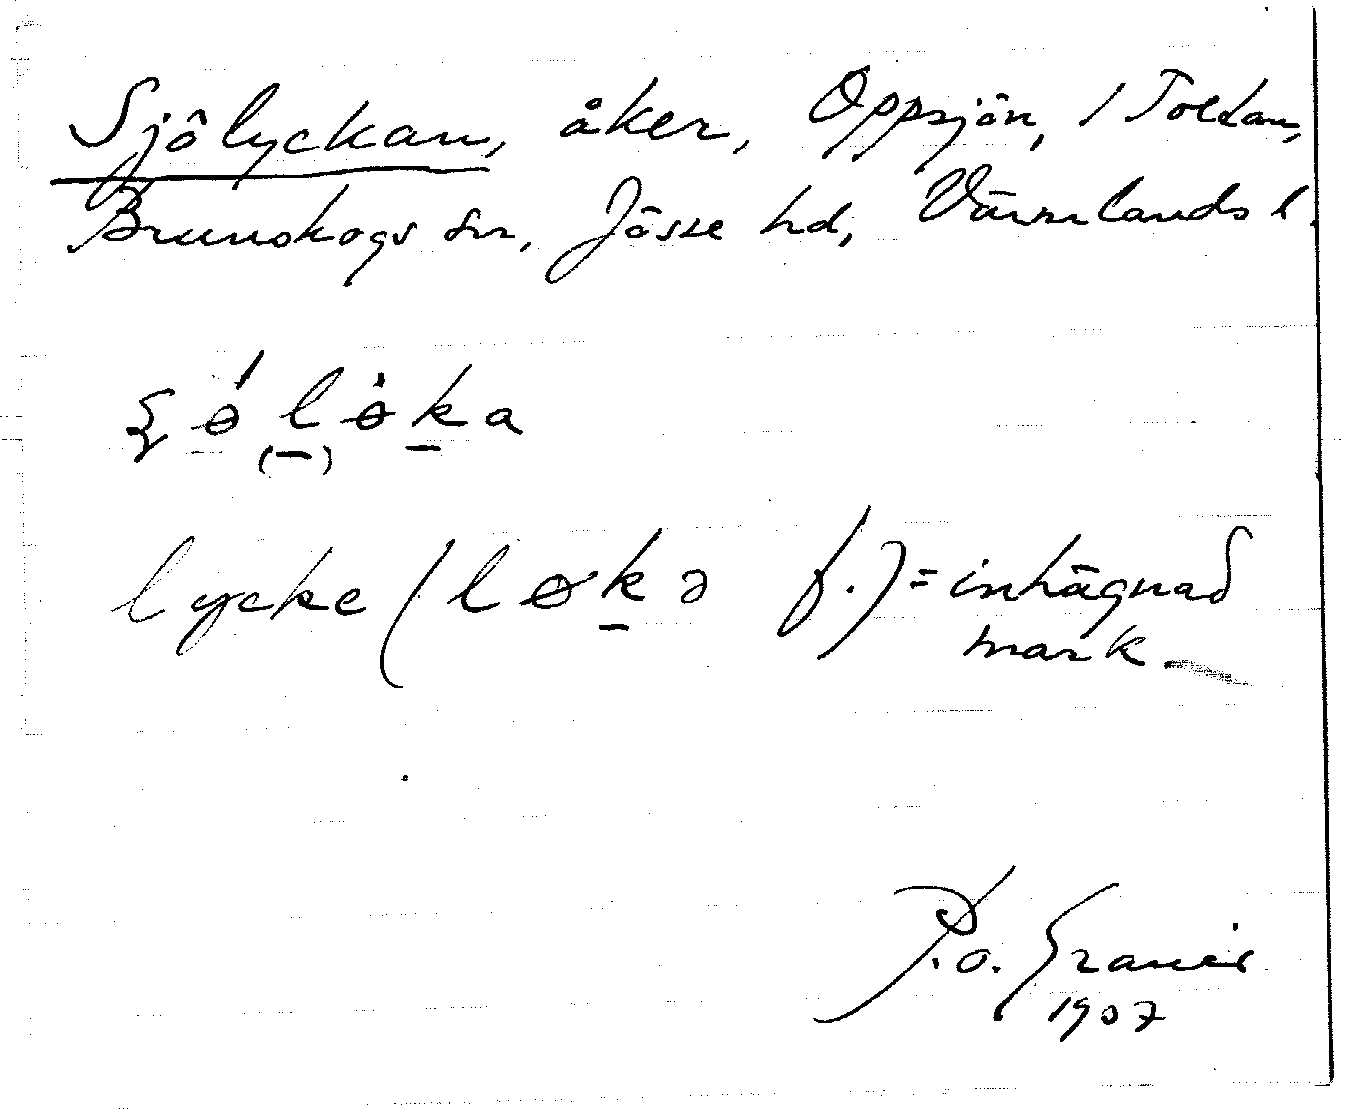 Sjölyckan, åker, Oppsjön, 1 Toltan,
Brunskogs sn, Jösse hd, Värmlands l.
lycke (løkə f.) = inhägnad
mark
P.o. Granér
1907